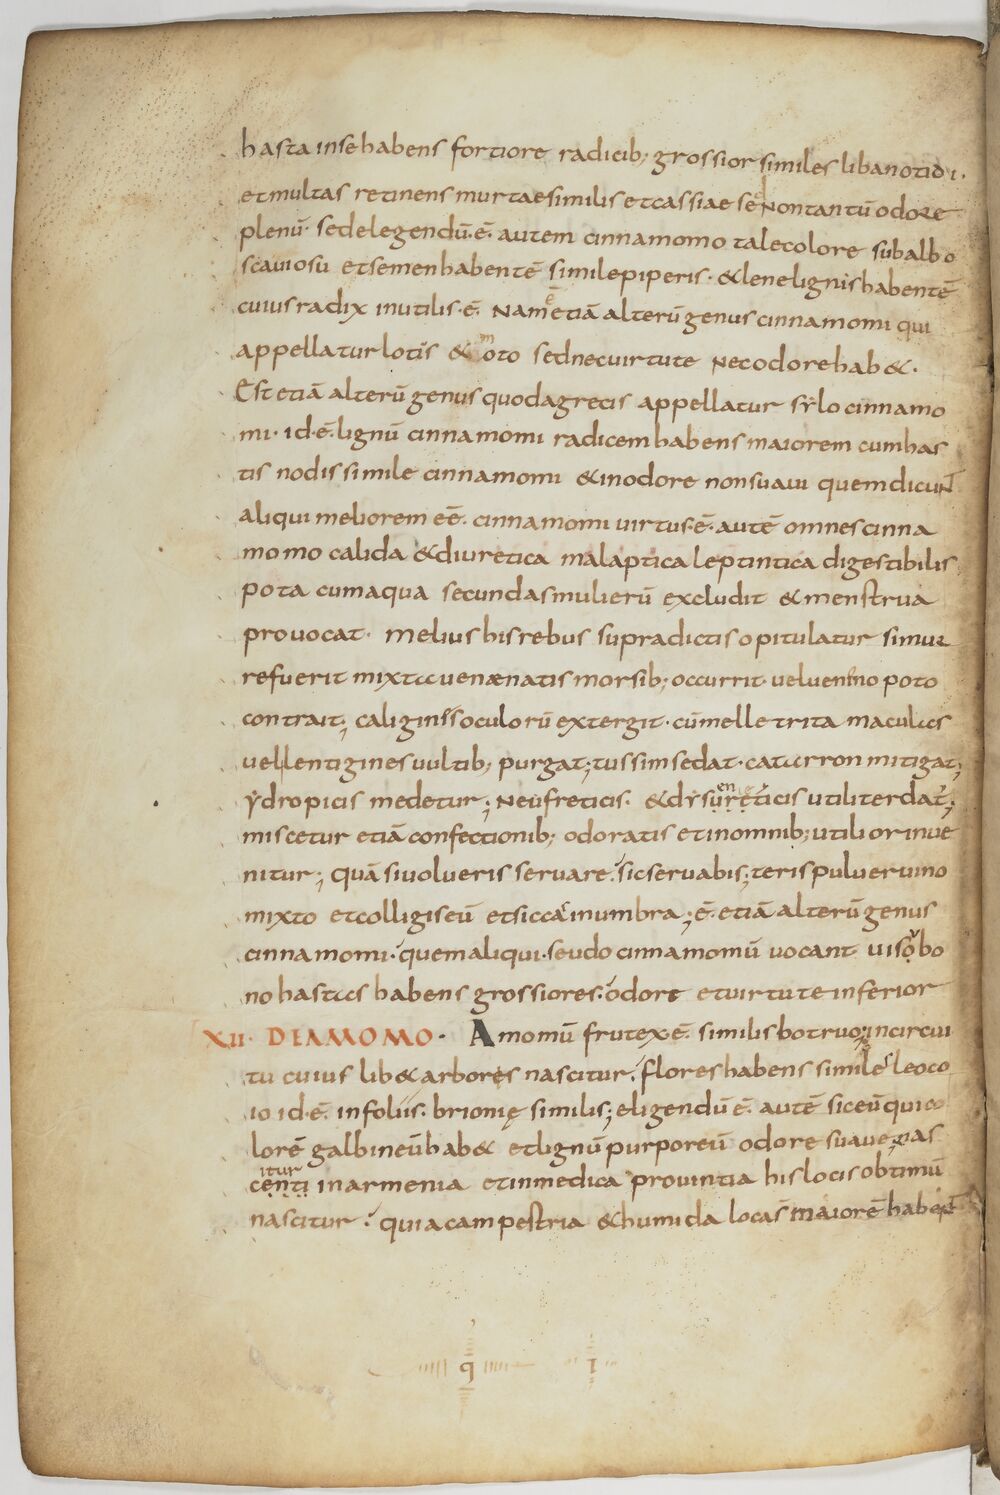 hasta in se habens fortiore radicib; grossior similes libanotidi.
et multas retinens murtae similis et cassiae sed Non tantū odore
plenū· sed elegendū·ē· autem cinnamomo tale colore subalbo
scauiosu et semen habentē simile piperis· & lene lignis habentē
cuius radix inutilis·ē· Nam ē etiā alterū genus cinnamomi qui
appellatur &  sed nec uirtute Nec odore hab&·
Est etiā alterū genus quod a grecis appellatur sylo cinnamo
mi· id·ē· lignū cinnamomi radicem habens maiorem cum has
tis nodis simile cinnamomi & in odore non suaui quem dicunt
aliqui meliorem eē· cinnamomi uirtus·ē· autē omnes cinna
momo calida & diuretica malaptica leptintica digestibilis
pota cum aqua secundas mulierū excludit & menstrua
prouocat· melius his rebus supradictis opitulatur si mur
re fuerit mixta uenaenatis morsib; occurrit· uel poto
contrait; caligines oculorū extergit· cū melle trita maculas
uel lentigines uultib; purgat; tussim sedat· catarron mitigat;
ydropicis medetur; Neufreticis· & utiliter datr̄;
miscetur etiā confectionib; odoratis et in omnib; utilior inue
nitur; quā si uolueris seruare· sic seruabis; teris puluer uino
mixto et colligis eū et siccas in umbra; ē· etiā alterū genus
cinnamomi· quem aliqui· seudo cinnamomū uocant uiso bo
no hastas habens grossiores· odore et uirtute inferior
XII· DE AMOMO· Amomū frutex·ē· similis botruo; in circui
tu cuius lib& arbores nascitur· flores habens simile leoco
io id·ē· in foliis· brionię similis; eligendū ē· autē sic eū qui co
lorē galbineū hab& et lignū purporeū odore suaue; nas
citur in armenia et in medica prouintia his locis obtimū
nascitur· quia campestria & humida loca maiorē habent
q I